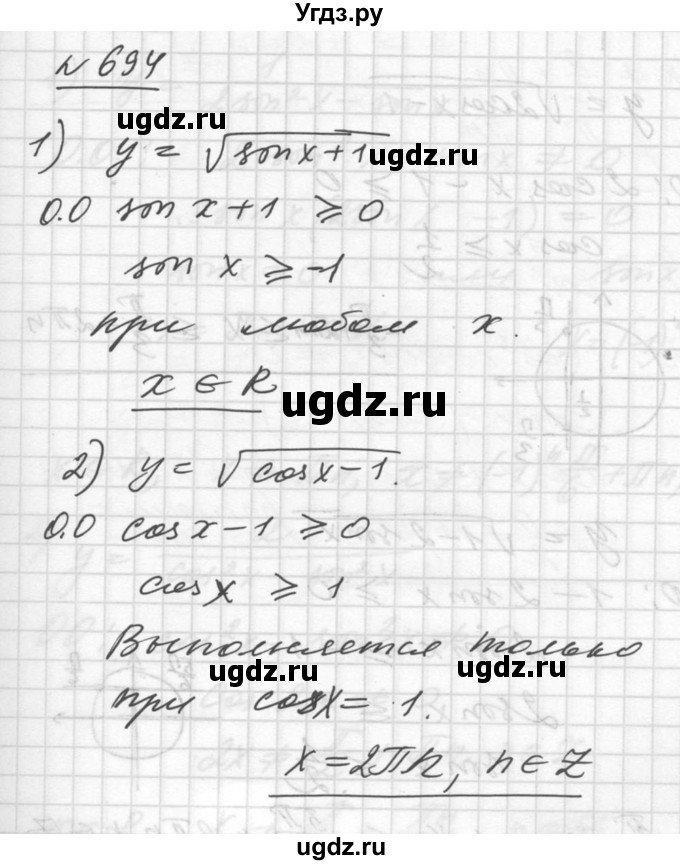 Угдз.ру
№ 694
1) y = √sin x + 1
ugdz.ru
ugdz.ru
О.О sin x + 1 ⩾ 0
ugdz.ru
sin x ⩾ -1
при любом x.
x ∈ R
ugdz.ru
2) y = √cos x - 1.
О.О cos x - 1 ⩾ 0
cos x ⩾ 1
Выполняется только
ugdz.ru
ugdz.ru
при cos x = 1.
x = 2πn, n ∈ Z
ugdz.ru
ugdz.ru